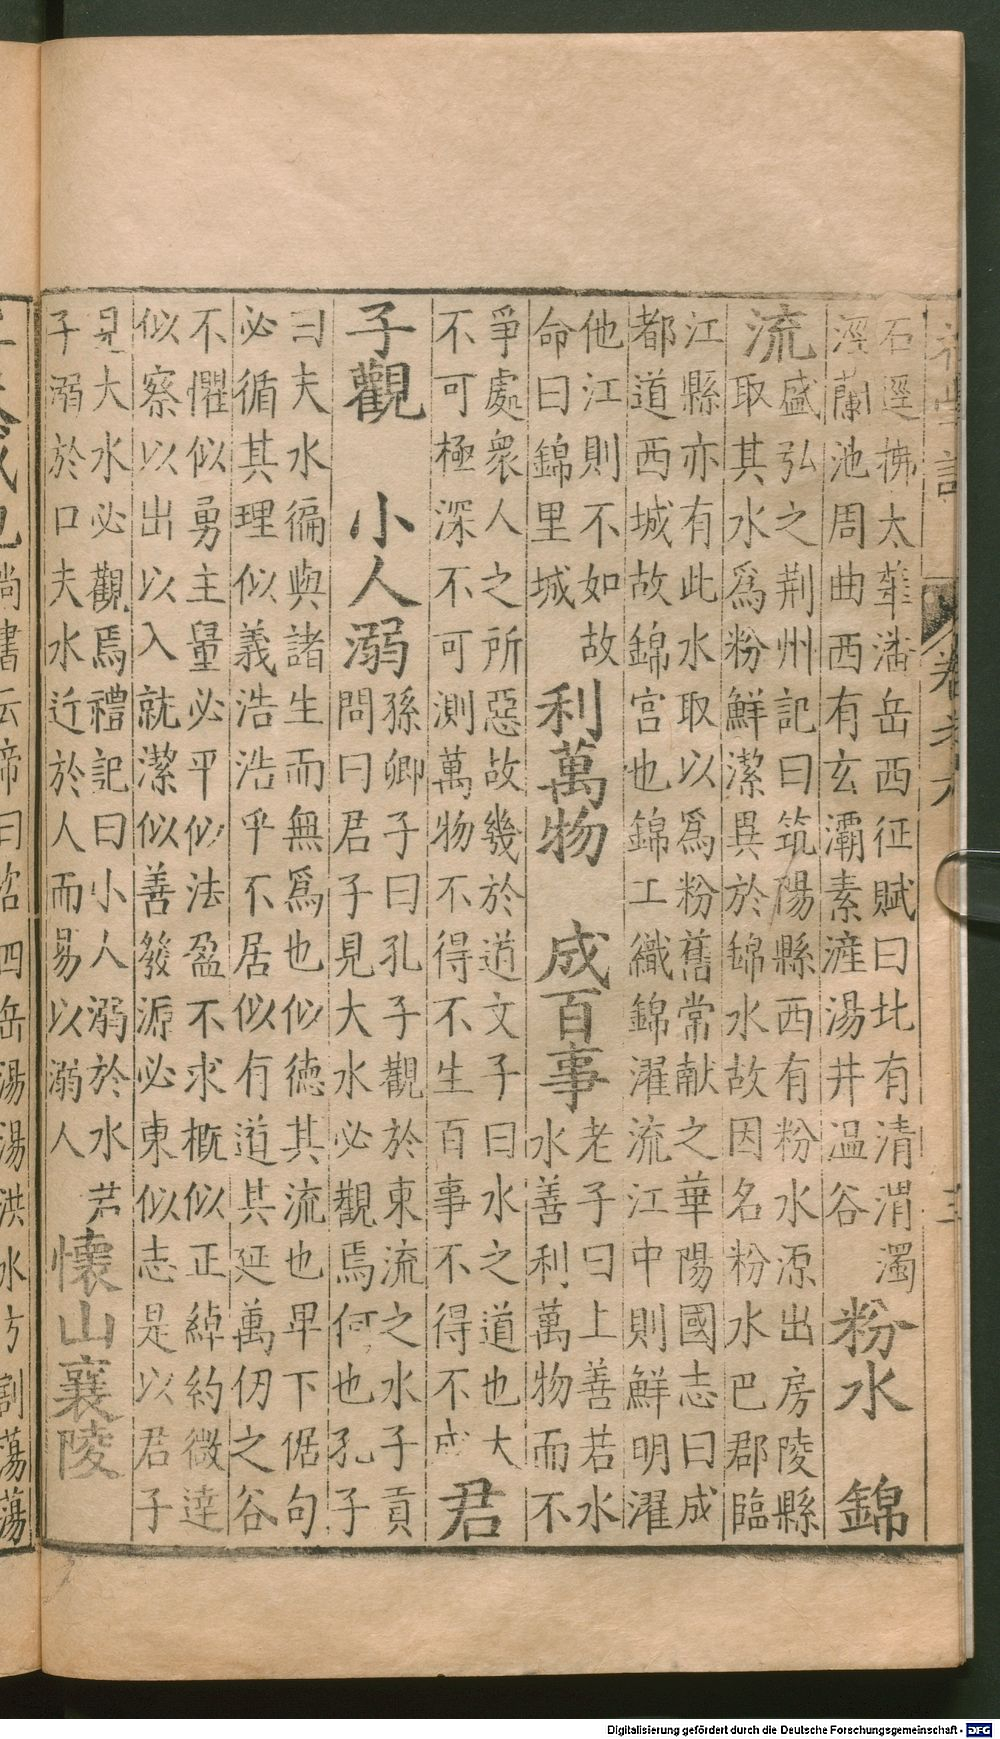 石逕拂太華潘岳西征賦曰北有清渭濁
涇蘭池周曲西有玄灞素滻湯井温谷
粉水 錦
流
盛弘之荆州記曰筑陽縣西有粉水源出房陵縣
取其水爲粉鮮潔異於錦水故因名粉水巴郡臨
江縣亦有此水取以爲粉舊常献之華陽國志曰成
都道西城故錦宫也錦工織錦濯流江中則鮮明濯
他江則不如故
命曰錦里城
利萬物 成百事
老子曰上善若水
水善利萬物而不
爭處衆人之所惡故幾於道文子曰水之道也大
不可極深不可測萬物不得不生百事不得不成
君
子觀 小人溺
孫卿子曰孔子觀於東流之水子貢
問曰君子見大水必觀焉何也孔子
曰夫水徧與諸生而無爲也似德其流也卑下倨句
必循其理似義浩浩乎不居似有道其延萬仞之谷
不懼似勇主量必平似法盈不求概似正綽約微逹
似察以出以入就潔似善發源必東似志是以君子
見大水必觀焉禮記曰小人溺於水君
子溺於口夫水近於人而易以溺人
懷山襄陵
尚書云帝曰咨四岳湯湯洪水方割蕩蕩
Digitalisierung gefördert durch die Deutsche Forschungsgemeinschaft - DFG